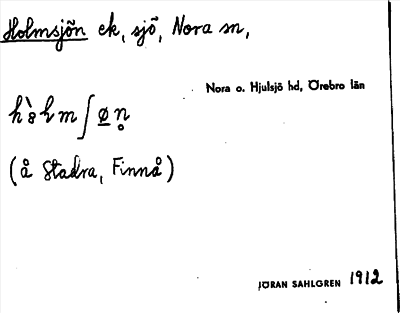 Holmsjön ek, sjö, Nora sn,
Nora o. Hjulsjö hd, Örebro län
(å Stadra, Finnå)
JÖRAN SAHLGREN 1912